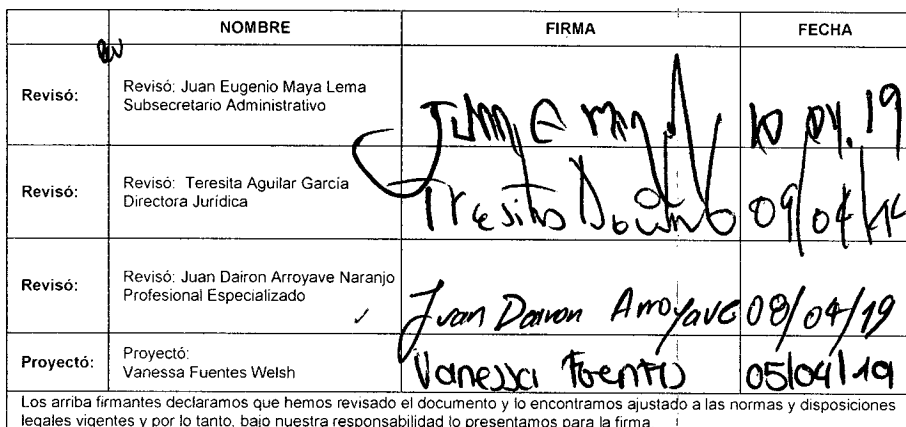 NOMBRE FIRMA FECHA
Revisó: Revisó: Juan Eugenio Maya Lema
Subsecretario Administrativo
10 04.19
Revisó: Revisó: Teresita Aguilar García
Directora Jurídica
Teresita 09/04/19
Revisó: Revisó: Juan Dairon Arroyave Naranjo
Profesional Especializado
Juan Dairon Arroyave 08/04/19
Proyectó: Proyectó:
Vanessa Fuentes Welsh
Vanessa Fuentes 05/04/19
Los arriba firmantes declaramos que hemos revisado el documento y lo encontramos ajustado a las normas y disposiciones
legales vigentes y por lo tanto, bajo nuestra responsabilidad lo presentamos para la firma